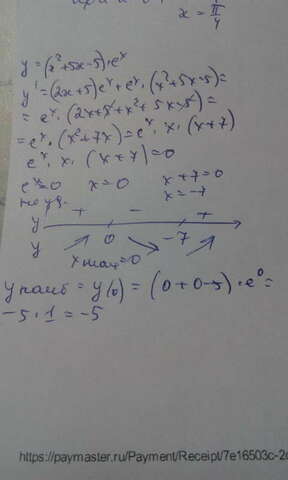 x = π/4
y=(x²+5x-5)·eˣ
y'=(2x+5)eˣ+eˣ·(x²+5x-5)=
=eˣ·(2x+5+x²+5x-5)=
=eˣ·(x²+7x)=eˣ·x·(x+7)
eˣ·x·(x+7)=0
eˣ=0 x=0 x+7=0
не уд. x=-7
y' + - +
y 0 -7
x max=0
y наиб = y(0) = (0+0-5)·e⁰=
-5·1=-5
https://paymaster.ru/Payment/Receipt/7e16503c-2